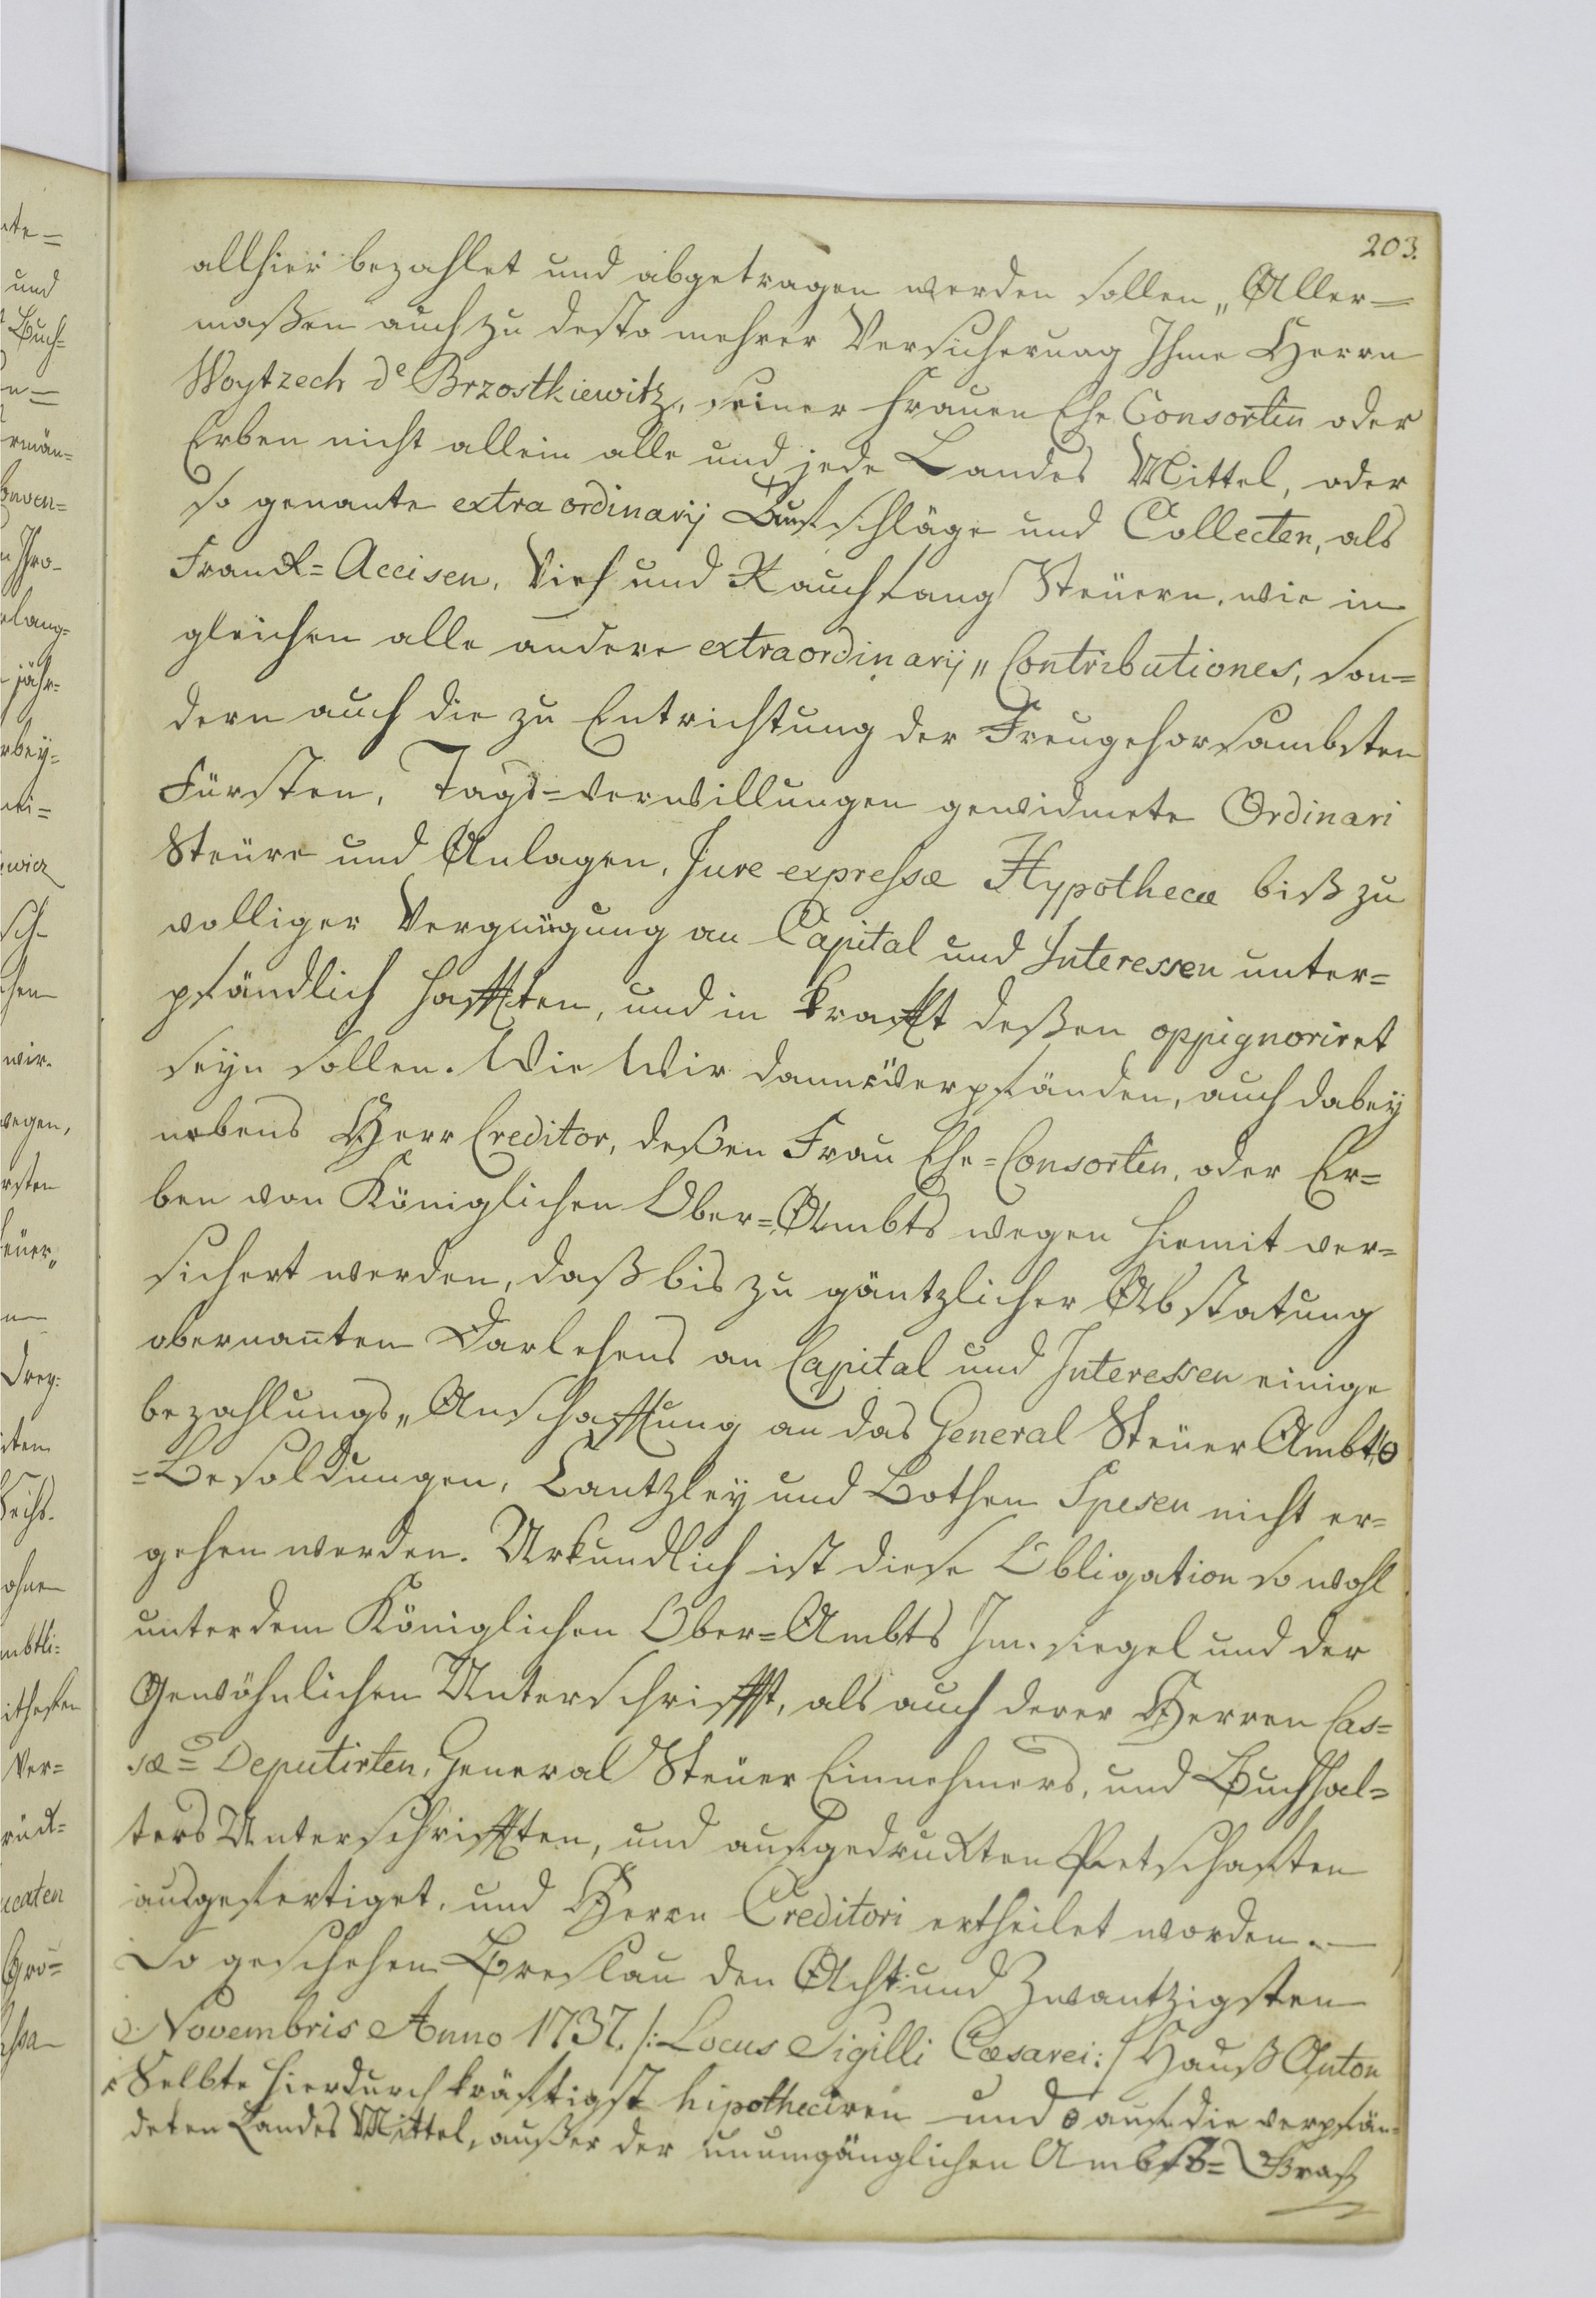 203.
allhier bezahlet und abgetragen werden sollen„ Aller=
maßen auch zu desto mehrer Versicherung Ihme Herrn
Woytzech de Brzostkiewitz, seiner Frauen Ehe Consortin oder
Erben nicht allein alle und jede Landes Mittel, oder
so genante extra ordinarij Auschläge und Collecten, als
Tranck= Accisen, Vieh und Rauchfang Steüern, wie in
gleichen alle andere extraordinarij„ Contributiones, son=
dern auch die zu Entrichtung der Treugehorsambsten
Fürsten, Tags=verwillungen gewidmete Ordinari
Steüre und Anlagen, Jure expressæ Hypothecæ biß zu
volliger Vergnügung an Capital und Interessen unter=
pfändlich hafften, und in krafft deßen oppignoriret
seyn sollen. Wie Wir dann verpfänden, auch dabey
nebens Herr Creditor, deßen Frau Ehe=Consortin, oder Er=
ben von Königlichen Ober=Ambts wegen hiemit ver=
sichert werden, daß bis zu gäntzlicher Abstatung
obernañten Darlehens an Capital und Interessen einige
bezahlungs„ Anschaffung an das General Steüer Ambt
=Besoldungen, Cantzley und Bothen Spesen nicht er=
gehen werden. Urkundlich ist diese Obligation so wohl
unter dem Königlichen Ober=Ambts In. siegel und der
Gewöhnlichen Unterschrifft, als auch derer Herren Cas=
sæ= Deputirten, General Steüer Einnehmers, und Buchhal=
ters Unterschrifften, und aufgedruckten Petschafften
ausgefertiget, und Herrn Creditori ertheilet worden.
So geschehen Breslau den Acht und Zwantzigsten
Novembris Anno 1737. /: Locus Sigilli Cæsarei :/ Hanß Anton
Selbte hierdurch kräftigst hipotheciren und auf die verpfän=
deten Landes Mittel, außer der unumgänglichen Ambts=
Graf